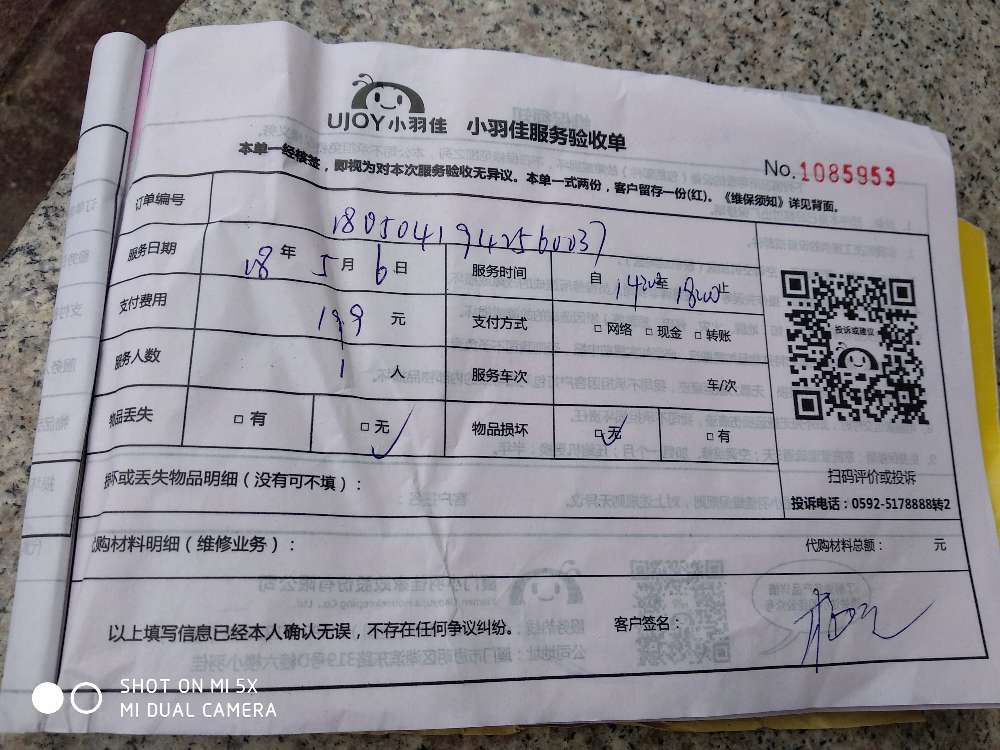 UJOY小羽佳 小羽佳服务验收单
No.1085953
本单一经核签，即视为对本次服务验收无异议。本单一式两份，客户留存一份(红)。《维保须知》详见背面。
订单编号 1805041942560037
服务日期 18年5月6日 服务时间 自1420至1820止
支付费用 199元 支付方式 □网络 □现金 □转账
服务人数 1人 服务车次 车/次
物品丢失 □有 □无 物品损坏 □无 □有
投诉或建议
扫码评价或投诉
投诉电话：0592-5178888转2
损坏或丢失物品明细（没有可不填）：
代购材料明细（维修业务）： 代购材料总额： 元
以上填写信息已经本人确认无误，不存在任何争议纠纷。 客户签名：
SHOT ON MI 5X
MI DUAL CAMERA